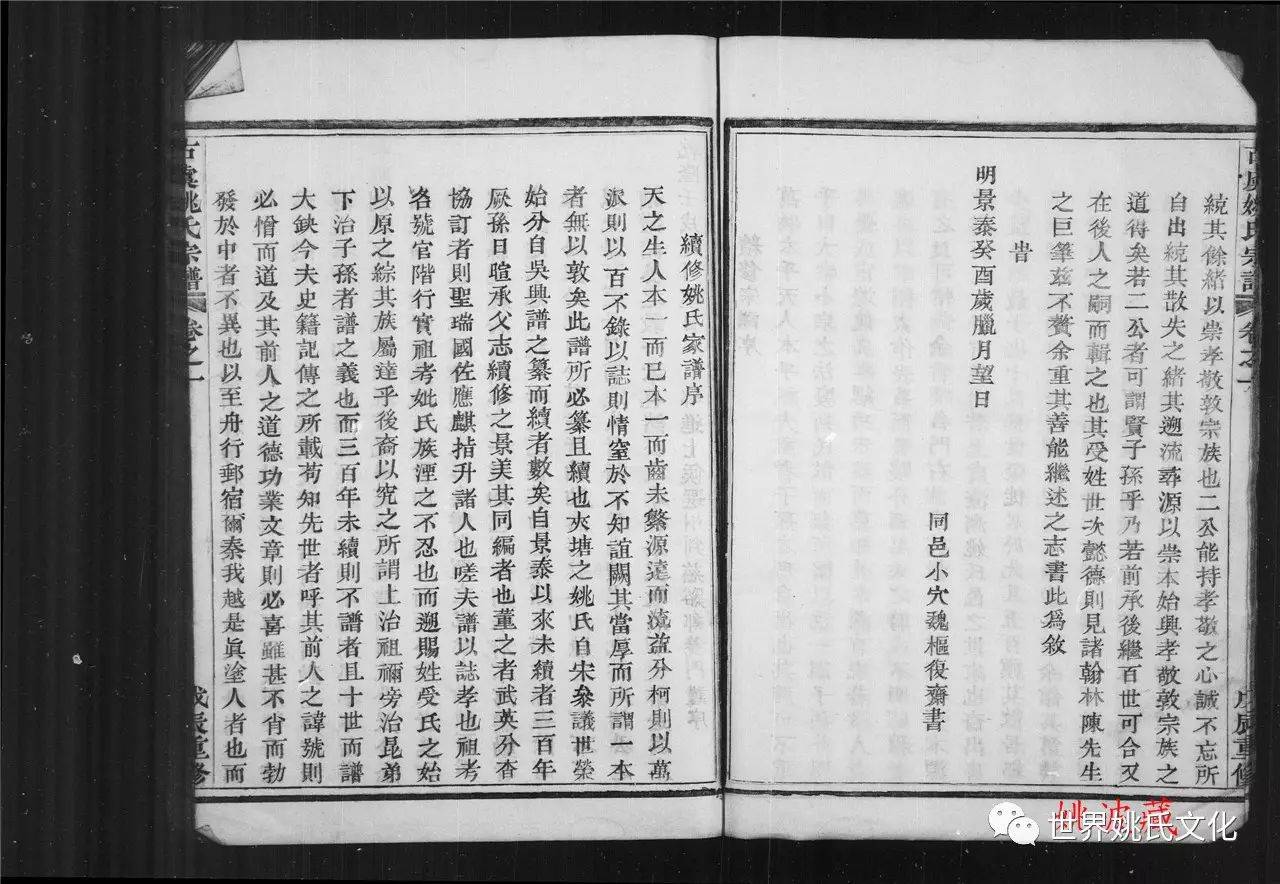 古虞姚氏宗譜 卷之一
戊辰重修
統其餘緒以崇孝敬敦宗族也二公能持孝敬之心誠不忘所
自出統其散失之緒其遡流尋源以崇本始興孝敬敦宗族之
道得矣若二公者可謂賢子孫乎乃若前承後繼百世可合又
在後人之嗣而輯之也其受姓世次懿德則見諸翰林陳先生
之巨筆茲不贅余重其善能繼述之志書此爲敘
旹
明景泰癸酉歲臘月望日
同邑小穴魏樞復齋書
續修姚氏家譜序
天之生人本一而已本一而齒未繁源遠而流益分柯則以萬
派則以百不錄以誌則情窒於不知誼闕其當厚而所謂一本
者無以敦矣此譜所必纂且續也夾塘之姚氏自宋叅議世榮
始分自吳興譜之纂而續者數矣自景泰以來未續者三百年
厥孫日暄承父志續修之景美其同編者也董之者武英分杳
協訂者則聖瑞國佐應麒指升諸人也嗟夫譜以誌孝也祖考
名號官階行實祖考妣氏族湮之不忍也而遡賜姓受氏之始
以原之綜其族屬達乎後裔以究之所謂上治祖禰旁治昆弟
下治子孫者譜之義也而三百年未續則不譜者且十世而譜
大缺今夫史籍記傳之所載苟知先世者呼其前人之諱號則
必憎而道及其前人之道德功業文章則必喜雖甚不肖而勃
發於中者不異也以至舟行郵宿爾秦我越是眞塗人者也而
古虞姚氏宗譜 卷之一
戊辰重修
姚波藏
世界姚氏文化